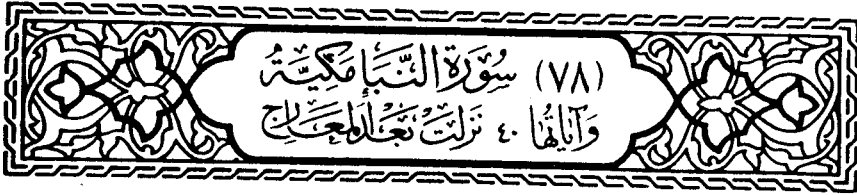 (٧٨) سُورَةُ النَّبَإِ مَكِّيَّةٌ
وَآيَاتُهَا ٤٠ نَزَلَتْ بَعْدَ المَعَارِجِ